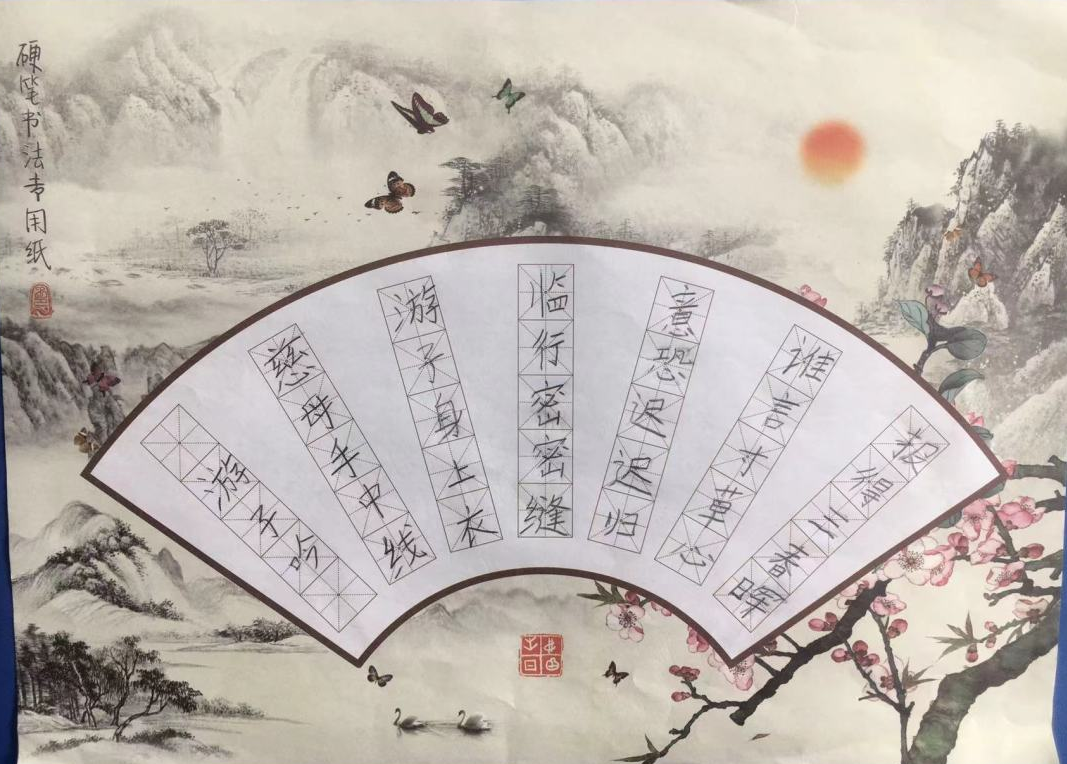 硬笔书法专用纸
游子吟
慈母手中线
游子身上衣
临行密密缝
意恐迟迟归
谁言寸草心
报得三春晖